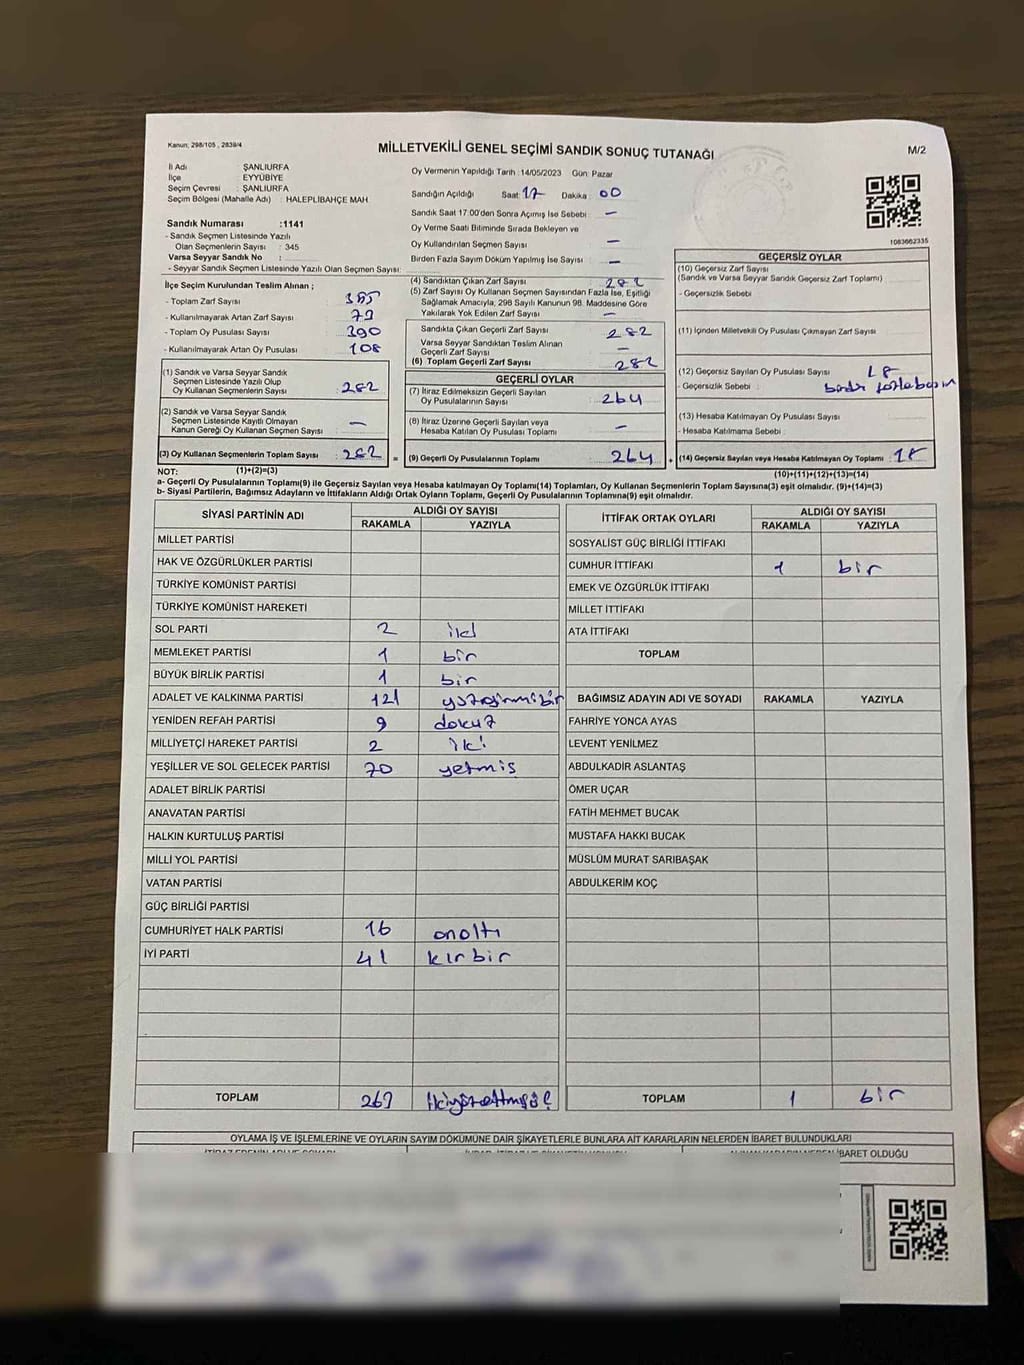 Kanun; 298/105 , 2839/4
MİLLETVEKİLİ GENEL SEÇİMİ SANDIK SONUÇ TUTANAĞI
M/2
İl Adı : ŞANLIURFA
İlçe : EYYÜBİYE
Seçim Çevresi : ŞANLIURFA
Seçim Bölgesi (Mahalle Adı) : HALEPLİBAHÇE MAH
Sandık Numarası :1141
- Sandık Seçmen Listesinde Yazılı
Olan Seçmenlerin Sayısı : 345
Varsa Seyyar Sandık No :
- Seyyar Sandık Seçmen Listesinde Yazılı Olan Seçmen Sayısı:
Oy Vermenin Yapıldığı Tarih :14/05/2023 Gün: Pazar
Sandığın Açıldığı Saat: 17 Dakika : 00
Sandık Saat 17.00'den Sonra Açımış İse Sebebi : –
Oy Verme Saati Bitiminde Sırada Bekleyen ve
Oy Kullandırılan Seçmen Sayısı : –
Birden Fazla Sayım Döküm Yapılmış İse Sayısı : –
1083662335
İlçe Seçim Kurulundan Teslim Alınan ;
- Toplam Zarf Sayısı :
- Kullanılmayarak Artan Zarf Sayısı :
- Toplam Oy Pusulası Sayısı : 390
- Kullanılmayarak Artan Oy Pusulası : 108
(1) Sandık ve Varsa Seyyar Sandık
Seçmen Listesinde Yazılı Olup
Oy Kullanan Seçmenlerin Sayısı : 282
(2) Sandık ve Varsa Seyyar Sandık
Seçmen Listesinde Kayıtlı Olmayan
Kanun Gereği Oy Kullanan Seçmen Sayısı : –
(3) Oy Kullanan Seçmenlerin Toplam Sayısı : 282 =
(4) Sandıktan Çıkan Zarf Sayısı : 282
(5) Zarf Sayısı Oy Kullanan Seçmen Sayısından Fazla İse, Eşitliği
Sağlamak Amacıyla, 298 Sayılı Kanunun 98. Maddesine Göre
Yakılarak Yok Edilen Zarf Sayısı : –
Sandıkta Çıkan Geçerli Zarf Sayısı : 282
Varsa Seyyar Sandıktan Teslim Alınan
Geçerli Zarf Sayısı : –
(6) Toplam Geçerli Zarf Sayısı : 282
GEÇERLİ OYLAR
(7) İtiraz Edilmeksizin Geçerli Sayılan
Oy Pusulalarının Sayısı : 264
(8) İtiraz Üzerine Geçerli Sayılan veya
Hesaba Katılan Oy Pusulası Toplamı : –
(9) Geçerli Oy Pusulalarının Toplamı : 264 +
GEÇERSİZ OYLAR
(10) Geçersiz Zarf Sayısı
(Sandık ve Varsa Seyyar Sandık Geçersiz Zarf Toplamı) :
- Geçersizlik Sebebi :
(11) İçinden Milletvekili Oy Pusulası Çıkmayan Zarf Sayısı :
(12) Geçersiz Sayılan Oy Pusulası Sayısı : 18
- Geçersizlik Sebebi :
(13) Hesaba Katılmayan Oy Pusulası Sayısı :
- Hesaba Katılmama Sebebi :
(14) Geçersiz Sayılan veya Hesaba Katılmayan Oy Toplamı : 18
NOT: (1)+(2)=(3)
(10)+(11)+(12)+(13)=(14)
a- Geçerli Oy Pusulalarının Toplamı(9) ile Geçersiz Sayılan veya Hesaba katılmayan Oy Toplamı(14) Toplamları, Oy Kullanan Seçmenlerin Toplam Sayısına(3) eşit olmalıdır. (9)+(14)=(3)
b- Siyasi Partilerin, Bağımsız Adayların ve İttifakların Aldığı Ortak Oyların Toplamı, Geçerli Oy Pusulalarının Toplamına(9) eşit olmalıdır.
SİYASİ PARTİNİN ADI ALDIĞI OY SAYISI
RAKAMLA YAZIYLA
MİLLET PARTİSİ
HAK VE ÖZGÜRLÜKLER PARTİSİ
TÜRKİYE KOMÜNİST PARTİSİ
TÜRKİYE KOMÜNİST HAREKETİ
SOL PARTİ 2 iki
MEMLEKET PARTİSİ 1 bir
BÜYÜK BİRLİK PARTİSİ 1 bir
ADALET VE KALKINMA PARTİSİ 121 yüzyirmibir
YENİDEN REFAH PARTİSİ 9 dokuz
MİLLİYETÇİ HAREKET PARTİSİ 2 iki
YEŞİLLER VE SOL GELECEK PARTİSİ 70 yetmiş
ADALET BİRLİK PARTİSİ
ANAVATAN PARTİSİ
HALKIN KURTULUŞ PARTİSİ
MİLLİ YOL PARTİSİ
VATAN PARTİSİ
GÜÇ BİRLİĞİ PARTİSİ
CUMHURİYET HALK PARTİSİ 16 onaltı
İYİ PARTİ 41 kırbir
TOPLAM 263 ikiyüzaltmışüç
İTTİFAK ORTAK OYLARI ALDIĞI OY SAYISI
RAKAMLA YAZIYLA
SOSYALİST GÜÇ BİRLİĞİ İTTİFAKI
CUMHUR İTTİFAKI 1 bir
EMEK VE ÖZGÜRLÜK İTTİFAKI
MİLLET İTTİFAKI
ATA İTTİFAKI
TOPLAM
BAĞIMSIZ ADAYIN ADI VE SOYADI RAKAMLA YAZIYLA
FAHRİYE YONCA AYAS
LEVENT YENİLMEZ
ABDULKADİR ASLANTAŞ
ÖMER UÇAR
FATİH MEHMET BUCAK
MUSTAFA HAKKI BUCAK
MÜSLÜM MURAT SARIBAŞAK
ABDULKERİM KOÇ
TOPLAM 1 bir
OYLAMA İŞ VE İŞLEMLERİNE VE OYLARIN SAYIM DÖKÜMÜNE DAİR ŞİKAYETLERLE BUNLARA AİT KARARLARIN NELERDEN İBARET BULUNDUKLARI
İBARET OLDUĞU